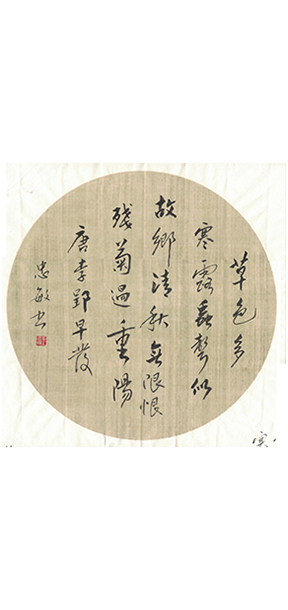 草色多
寒露蟲聲似
故鄉清秋無限恨
殘菊過重陽
唐李郢早發
忠敏书